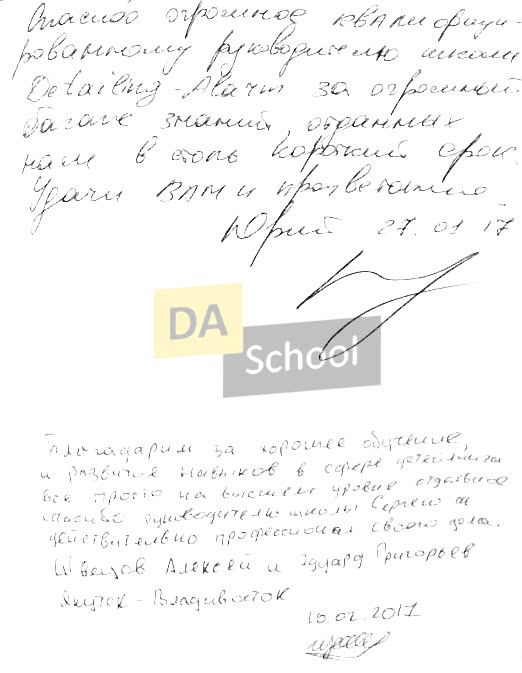 Спасибо огромное квалифици-
рованному руководителю школы
Detailing-Авачт за огромный
багаж знаний, отданных
нам в столь короткий срок.
Удачи ВАМ и процветания
Юрий 27.01 17
DA
School
Благодарим за хорошее обучение,
и развитие навыков в сфере детейлинга
все просто на высшем уровне отдельное
спасибо руководителю школы Сергею
действительно профессионал своего дела.
Алексей и Эдуард Григорьев
Якутск - Владивосток
10.02.2017